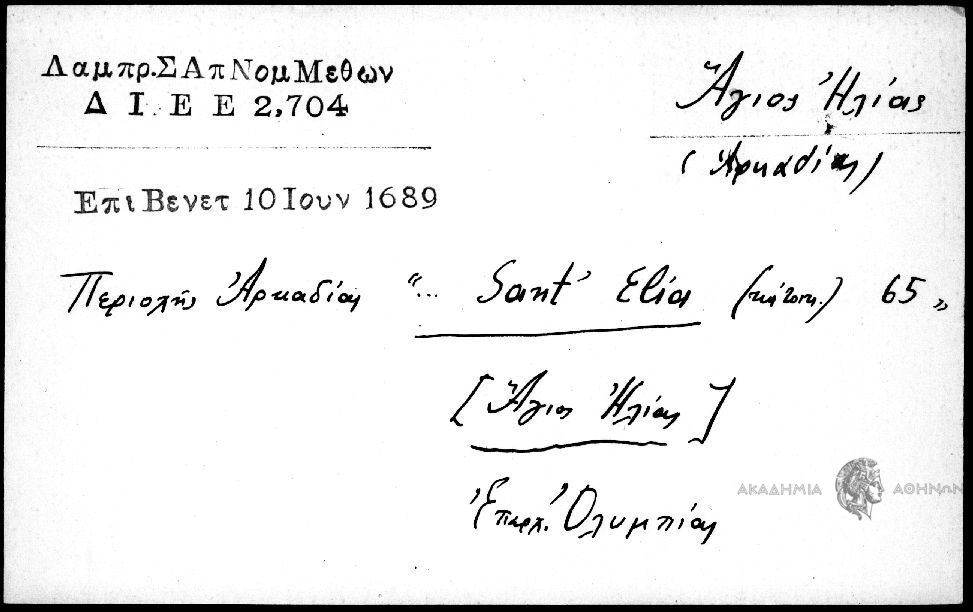 Λαμπρ.ΣΑπΝομΜεθων
Δ Ι Ε Ε 2,704
Ἅγιος Ἠλίας
(Ἀρκαδίας)
ΕπιΒενετ 10Ιουν 1689
Περιοχῆς Ἀρκαδίας "... Sant' Elia (κάτοικ.) 65"
[Ἅγιος Ἠλίας]
Ἐπαρχ. Ὀλυμπίας
ΑΚΑΔΗΜΙΑ ΑΘΗΝΩΝ